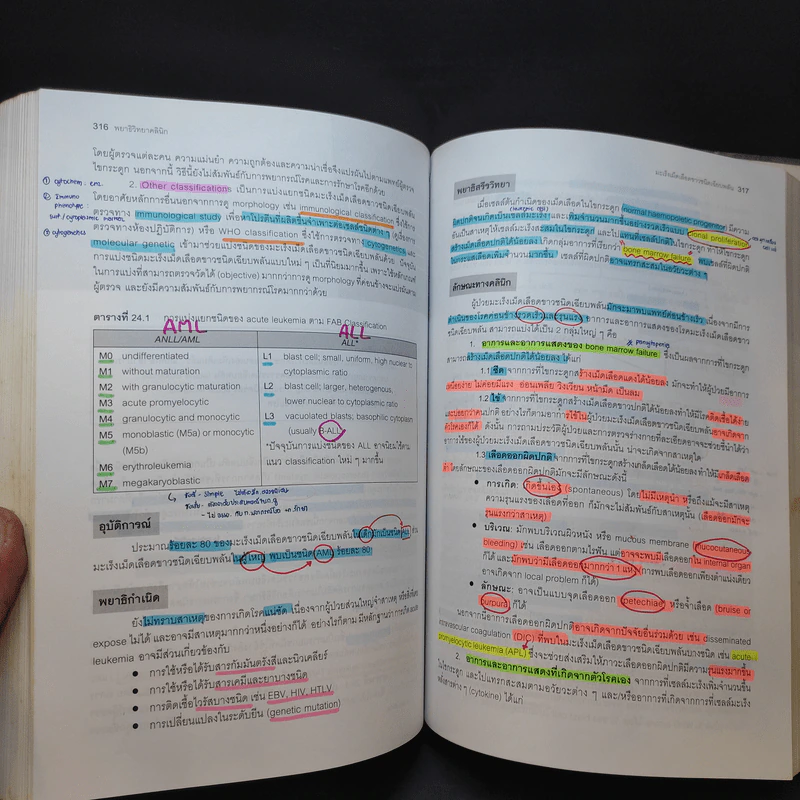 316 พยาธิวิทยาคลินิก
โดยผู้ตรวจแต่ละคน ความแม่นยำ ความถูกต้องและความน่าเชื่อจึงแปรผันไปตามแพทย์ผู้ตรวจ
ไขกระดูก นอกจากนี้ วิธีนี้ยังไม่สัมพันธ์กับการพยากรณ์โรคและการรักษาโรคอีกด้วย
2. Other classifications เป็นการแบ่งแยกชนิดมะเร็งเม็ดเลือดขาวชนิดเฉียบพลัน
โดยอาศัยหลักการอื่นนอกจากการดู morphology เช่น immunological classification ซึ่งใช้การ
ตรวจทาง immunological study เพื่อหาโปรตีนที่ผลิตขึ้นจำเพาะต่อเซลล์ชนิดต่างๆ
ตรวจทางห้องปฏิบัติการ) หรือ WHO classification ซึ่งใช้การตรวจทาง cytogenetics และ
molecular genetic เข้ามาช่วยแบ่งชนิดของมะเร็งเม็ดเลือดขาวชนิดเฉียบพลัน ปัจจุบัน
การแบ่งมะเร็งเม็ดเลือดขาวชนิดเฉียบพลันแบบใหม่ ๆ เป็นที่นิยมมากขึ้น เพราะใช้หลักเกณฑ์
ในการแบ่งที่สามารถตรวจวัดได้ (objective) มากกว่าการดู morphology ที่ค่อนข้างจะแปรผันตาม
ผู้ตรวจ และยังมีความสัมพันธ์กับการพยากรณ์โรคมากกว่าด้วย
① cytochem
② Immuno
phenotype
③ cytogenetics
ตารางที่ 24.1 การแบ่งแยกชนิดของ acute leukemia ตาม FAB Classification
AML ALL
ANLL/AML ALL*
M0 undifferentiated
M1 without maturation
M2 with granulocytic maturation
M3 acute promyelocytic
M4 granulocytic and monocytic
M5 monoblastic (M5a) or monocytic
(M5b)
M6 erythroleukemia
M7 megakaryoblastic
L1 blast cell; small, uniform, high nuclear to
cytoplasmic ratio
L2 blast cell; larger, heterogenous,
lower nuclear to cytoplasmic ratio
L3 vacuolated blasts; basophilic cytoplasm
(usually B-ALL)
*ปัจจุบันการแบ่งชนิดของ ALL อาจนิยมใช้ตาม
แนว classification ใหม่ ๆ มากขึ้น
อุบัติการณ์
ประมาณร้อยละ 80 ของมะเร็งเม็ดเลือดขาวชนิดเฉียบพลันในเด็กมักเป็นชนิด
มะเร็งเม็ดเลือดขาวชนิดเฉียบพลันในผู้ใหญ่ พบเป็นชนิด AML ร้อยละ 80
พยาธิกำเนิด
ยังไม่ทราบสาเหตุของการเกิดโรคแน่ชัด เนื่องจากผู้ป่วยส่วนใหญ่จำสาเหตุ
expose ไม่ได้ และอาจมีสาเหตุมากกว่าหนึ่งอย่างก็ได้ อย่างไรก็ตาม มีหลักฐานว่าการเกิด acute
leukemia อาจมีส่วนเกี่ยวข้องกับ
• การใช้หรือได้รับสารกัมมันตรังสีและนิวเคลียร์
• การใช้หรือได้รับสารเคมีและยาบางชนิด
• การติดเชื้อไวรัสบางชนิด เช่น EBV, HIV, HTLV
• การเปลี่ยนแปลงในระดับยีน (genetic mutation)
มะเร็งเม็ดเลือดขาวชนิดเฉียบพลัน 317
พยาธิสรีรวิทยา
เมื่อเซลล์ต้นกำเนิดของเม็ดเลือดในไขกระดูก (normal haemopoietic progenitor) มีความ
ผิดปกติจนเกิดเป็นเซลล์มะเร็งและเพิ่มจำนวนมากขึ้นอย่างรวดเร็วแบบ clonal proliferation
อันเป็นสาเหตุให้เซลล์มะเร็งสะสมในไขกระดูก และไปแทนที่เซลล์ปกติในไขกระดูก ทำให้ไขกระดูก
สร้างเม็ดเลือดปกติได้น้อยลง เกิดกลุ่มอาการที่เรียกว่า bone marrow failure พบเซลล์ที่ผิดปกติ
ในกระแสเลือดเพิ่มจำนวนมากขึ้น เซลล์ที่ผิดปกติอาจแทรกสะสมในอวัยวะต่าง ๆ
ลักษณะทางคลินิก
ผู้ป่วยมะเร็งเม็ดเลือดขาวชนิดเฉียบพลันมักจะมาพบแพทย์ค่อนข้างเร็ว เนื่องจากมีการ
ดำเนินของโรคค่อนข้างรวดเร็ว รุนแรง อาการและอาการแสดงของโรคมะเร็งเม็ดเลือดขาว
ชนิดเฉียบพลัน สามารถแบ่งได้เป็น 2 กลุ่มใหญ่ ๆ คือ
1. อาการและอาการแสดงของ bone marrow failure ซึ่งเป็นผลจากการที่ไขกระดูก
สามารถสร้างเม็ดเลือดปกติได้น้อยลง ได้แก่
1.1 ซีด จากการที่ไขกระดูกสร้างเม็ดเลือดแดงได้น้อยลง มักจะทำให้ผู้ป่วยมีอาการ
เหนื่อยง่าย ไม่ค่อยมีแรง อ่อนเพลีย วิงเวียน หน้ามืด เป็นลม
1.2 ไข้ จากการที่ไขกระดูกสร้างเม็ดเลือดขาวปกติได้น้อยลง ทำให้มีโรคติดเชื้อได้ง่าย
และบ่อยกว่าคนปกติ อย่างไรก็ตามอาการไข้ในผู้ป่วยมะเร็งเม็ดเลือดขาวชนิดเฉียบพลันอาจเกิดจาก
ตัวโรคเองก็ได้ ดังนั้น การถามประวัติผู้ป่วยและการตรวจร่างกายที่ละเอียดอาจจะช่วยชี้นำได้ว่า
อาการไข้ของผู้ป่วยมะเร็งเม็ดเลือดขาวชนิดเฉียบพลันนั้น น่าจะเกิดจากสาเหตุใด
1.3 เลือดออกผิดปกติ จากการที่ไขกระดูกสร้างเกล็ดเลือดได้น้อยลง ทำให้มีเกล็ดเลือด
ต่ำ โดยลักษณะของเลือดออกผิดปกติมักจะมีลักษณะดังนี้
• การเกิด: เกิดขึ้นเอง (spontaneous) โดยไม่มีเหตุนำ หรือถึงแม้จะมีสาเหตุ
ความรุนแรงของเลือดที่ออก ก็มักจะไม่สัมพันธ์กับสาเหตุนั้น (เลือดออกมักจะ
รุนแรงกว่าสาเหตุ)
• บริเวณ: มักพบบริเวณผิวหนัง หรือ mucous membrane (mucocutaneous
bleeding) เช่น เลือดออกตามไรฟัน แต่อาจจะพบมีเลือดออกใน internal organ
ก็ได้ และมักพบว่ามีเลือดออกมากกว่า 1 แห่ง (การพบเลือดออกเพียงตำแหน่งเดียว
อาจเกิดจาก local problem ก็ได้)
• ลักษณะ: อาจเป็นแบบจุดเลือดออก (petechiae) หรือจ้ำเลือด (bruise or
purpura) ก็ได้
นอกจากนี้อาการเลือดออกผิดปกติอาจเกิดจากปัจจัยอื่นร่วมด้วย เช่น disseminated
intravascular coagulation (DIC) ที่พบในมะเร็งเม็ดเลือดขาวชนิดเฉียบพลันบางชนิด เช่น acute
promyelocytic leukemia (APL) ซึ่งจะช่วยส่งเสริมให้ภาวะเลือดออกผิดปกติมีความรุนแรงมากขึ้น
2. อาการและอาการแสดงที่เกิดจากตัวโรคเอง จากการที่เซลล์มะเร็งเพิ่มจำนวนขึ้น
ในไขกระดูก และไปแทรกสะสมตามอวัยวะต่าง ๆ และ/หรืออาการที่เกิดจากการที่เซลล์มะเร็ง
หลั่งสารต่าง ๆ (cytokine) ได้แก่